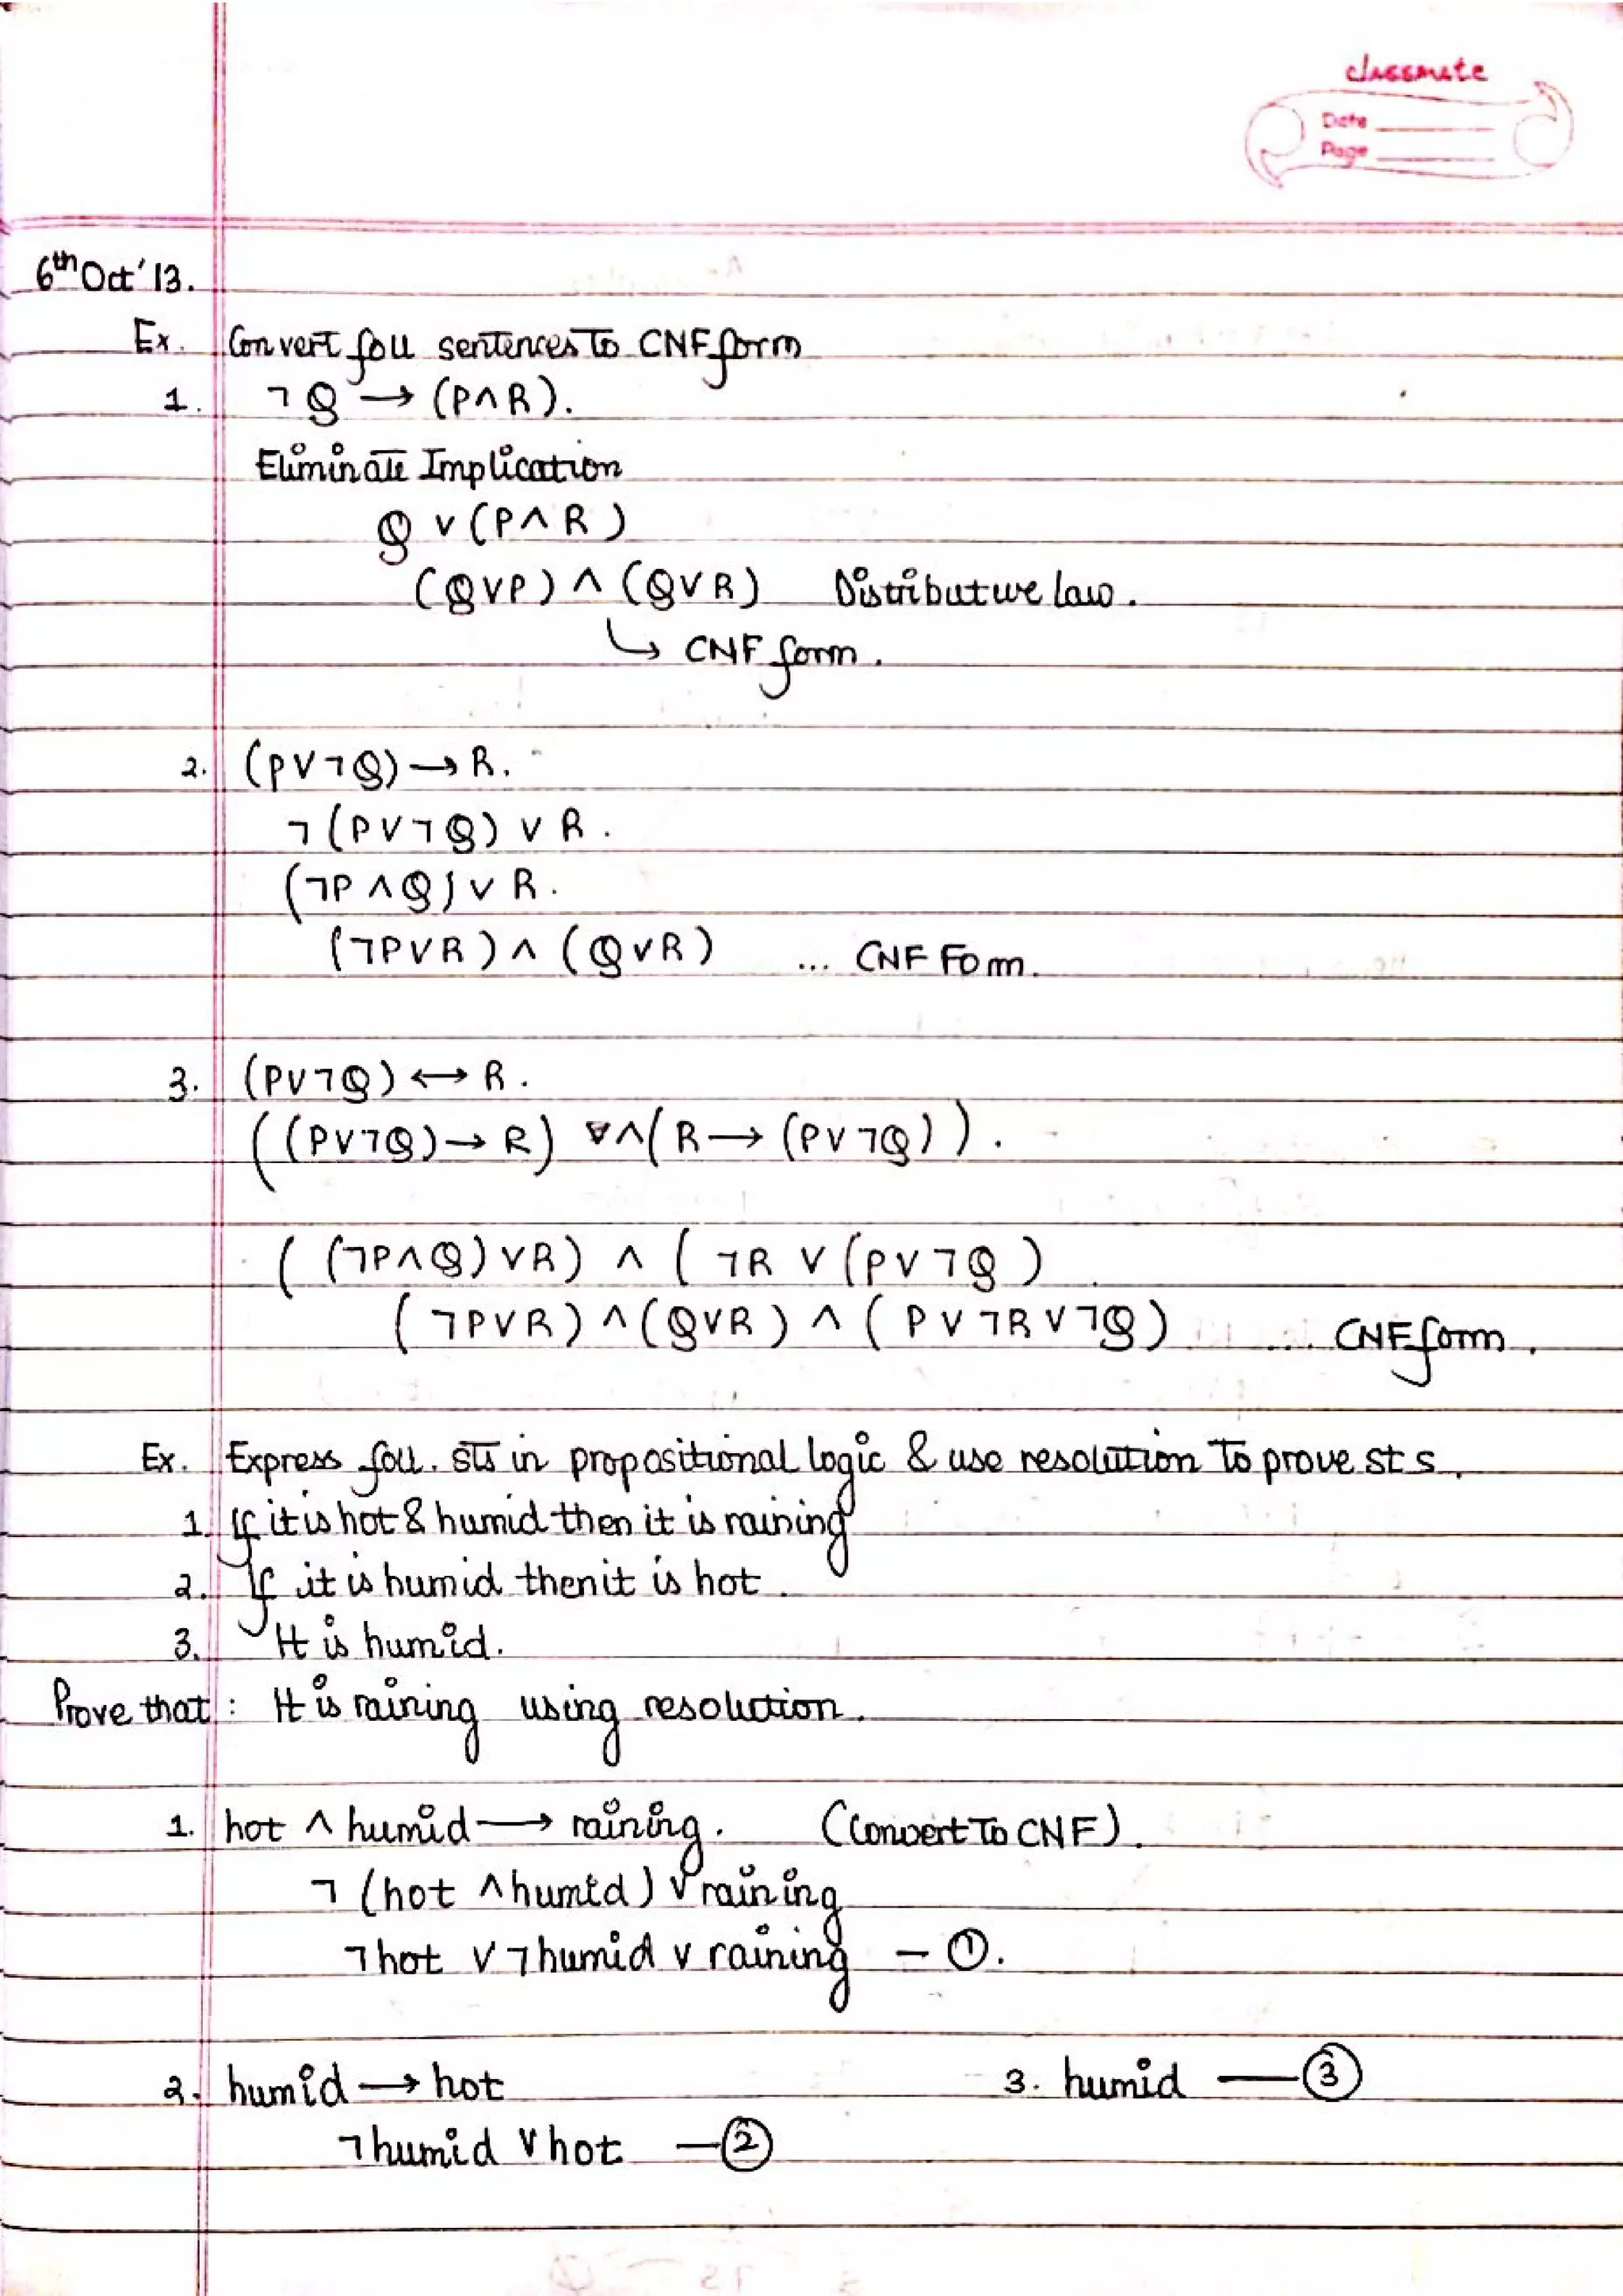 classmate
Date
Page
6th Oct' 13.
Ex. Convert foll sentences to CNF form
1. ¬Q → (P∧R).
Eliminate Implication
Q ∨ (P∧R)
(Q∨P) ∧ (Q∨R) Distributive law.
↳ CNF form.
2. (P∨¬Q) → R.
¬(P∨¬Q) ∨ R.
(¬P∧Q) ∨ R.
(¬P∨R) ∧ (Q∨R) ... CNF Form.
3. (P∨¬Q) ↔ R.
((P∨¬Q) → R) ∧ (R → (P∨¬Q)).
((¬P∧Q) ∨R) ∧ (¬R ∨ (P∨¬Q)
(¬P∨R) ∧ (Q∨R) ∧ (P∨¬R∨¬Q) ... CNF form.
Ex. Express foll. sts in propositional logic & use resolution to prove sts.
1. If it is hot & humid then it is raining
2. If it is humid then it is hot.
3. It is humid.
Prove that : It is raining using resolution.
1. hot ∧ humid → raining. (Convert to CNF).
¬ (hot ∧ humid) ∨ raining
¬hot ∨ ¬humid ∨ raining – ①.
2. humid → hot 3. humid — ③
¬humid ∨ hot — ②